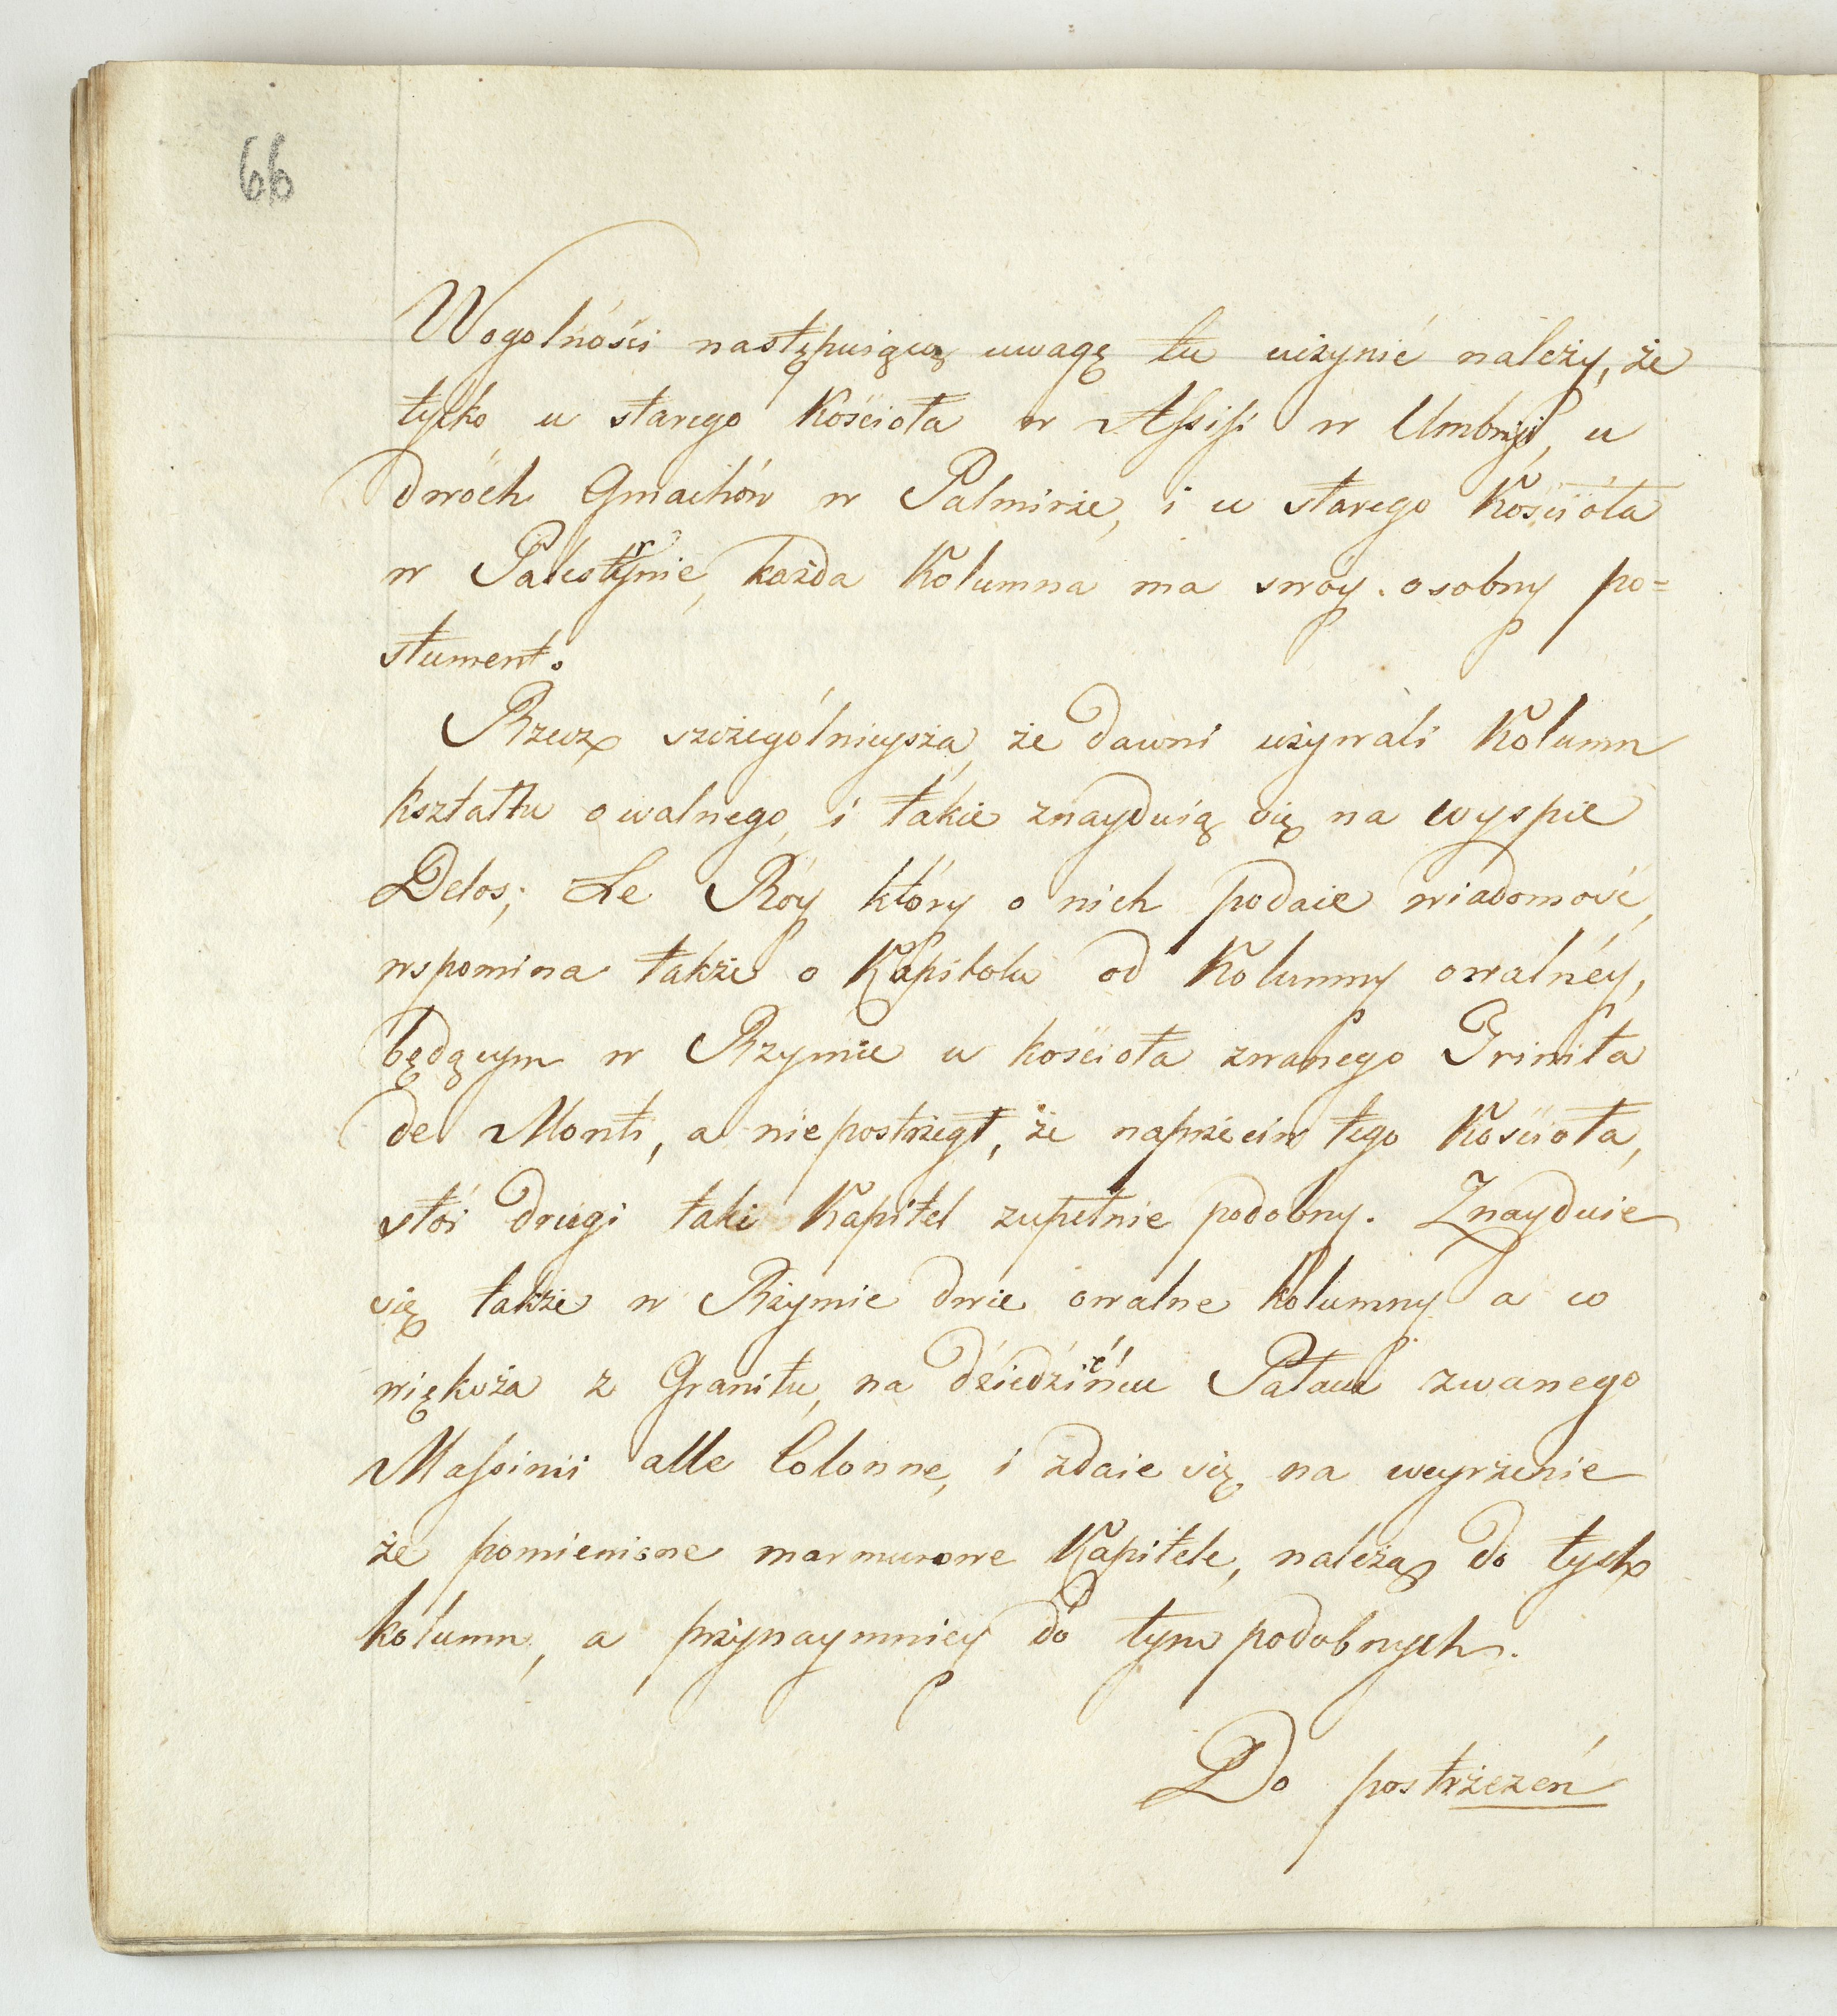 66
Wogolności następuiącą uwagę tu uczynić należy, że
tylko u starego Kościoła w Assisi w Umbryi, u
dwóch Gmachów w Palmirze, i u starego Kościoła
w Palestrynie, każda Kolumna ma swóy osobny po=
stument.
Rzecz szczególnieysza, że dawni używali Kolumn
kształtu owalnego, i takie znayduią się na wyspie
Delos; Le Roy który o nich podaie wiadomość,
wspomina także o Kapitelu od Kolumny owalnéy,
będącym w Rzymie u kościoła zwanego Trinita
de Monti, a niepostrzegł, że naprzeciw tego Kościoła,
stoi drugi taki Kapitel zupełnie podobny. Znayduie
się także w Rzymie dwie owalne kolumny a co
większa z Granitu, na dziedzińcu Pałacu zwanego
Massimi alle Colonne, i zdaie się na weyrzenie
że pomienione marmurowe Kapitele, należą do tych
kolumn, a przynaymniey do tym podobnych.
Do postrzeżeń